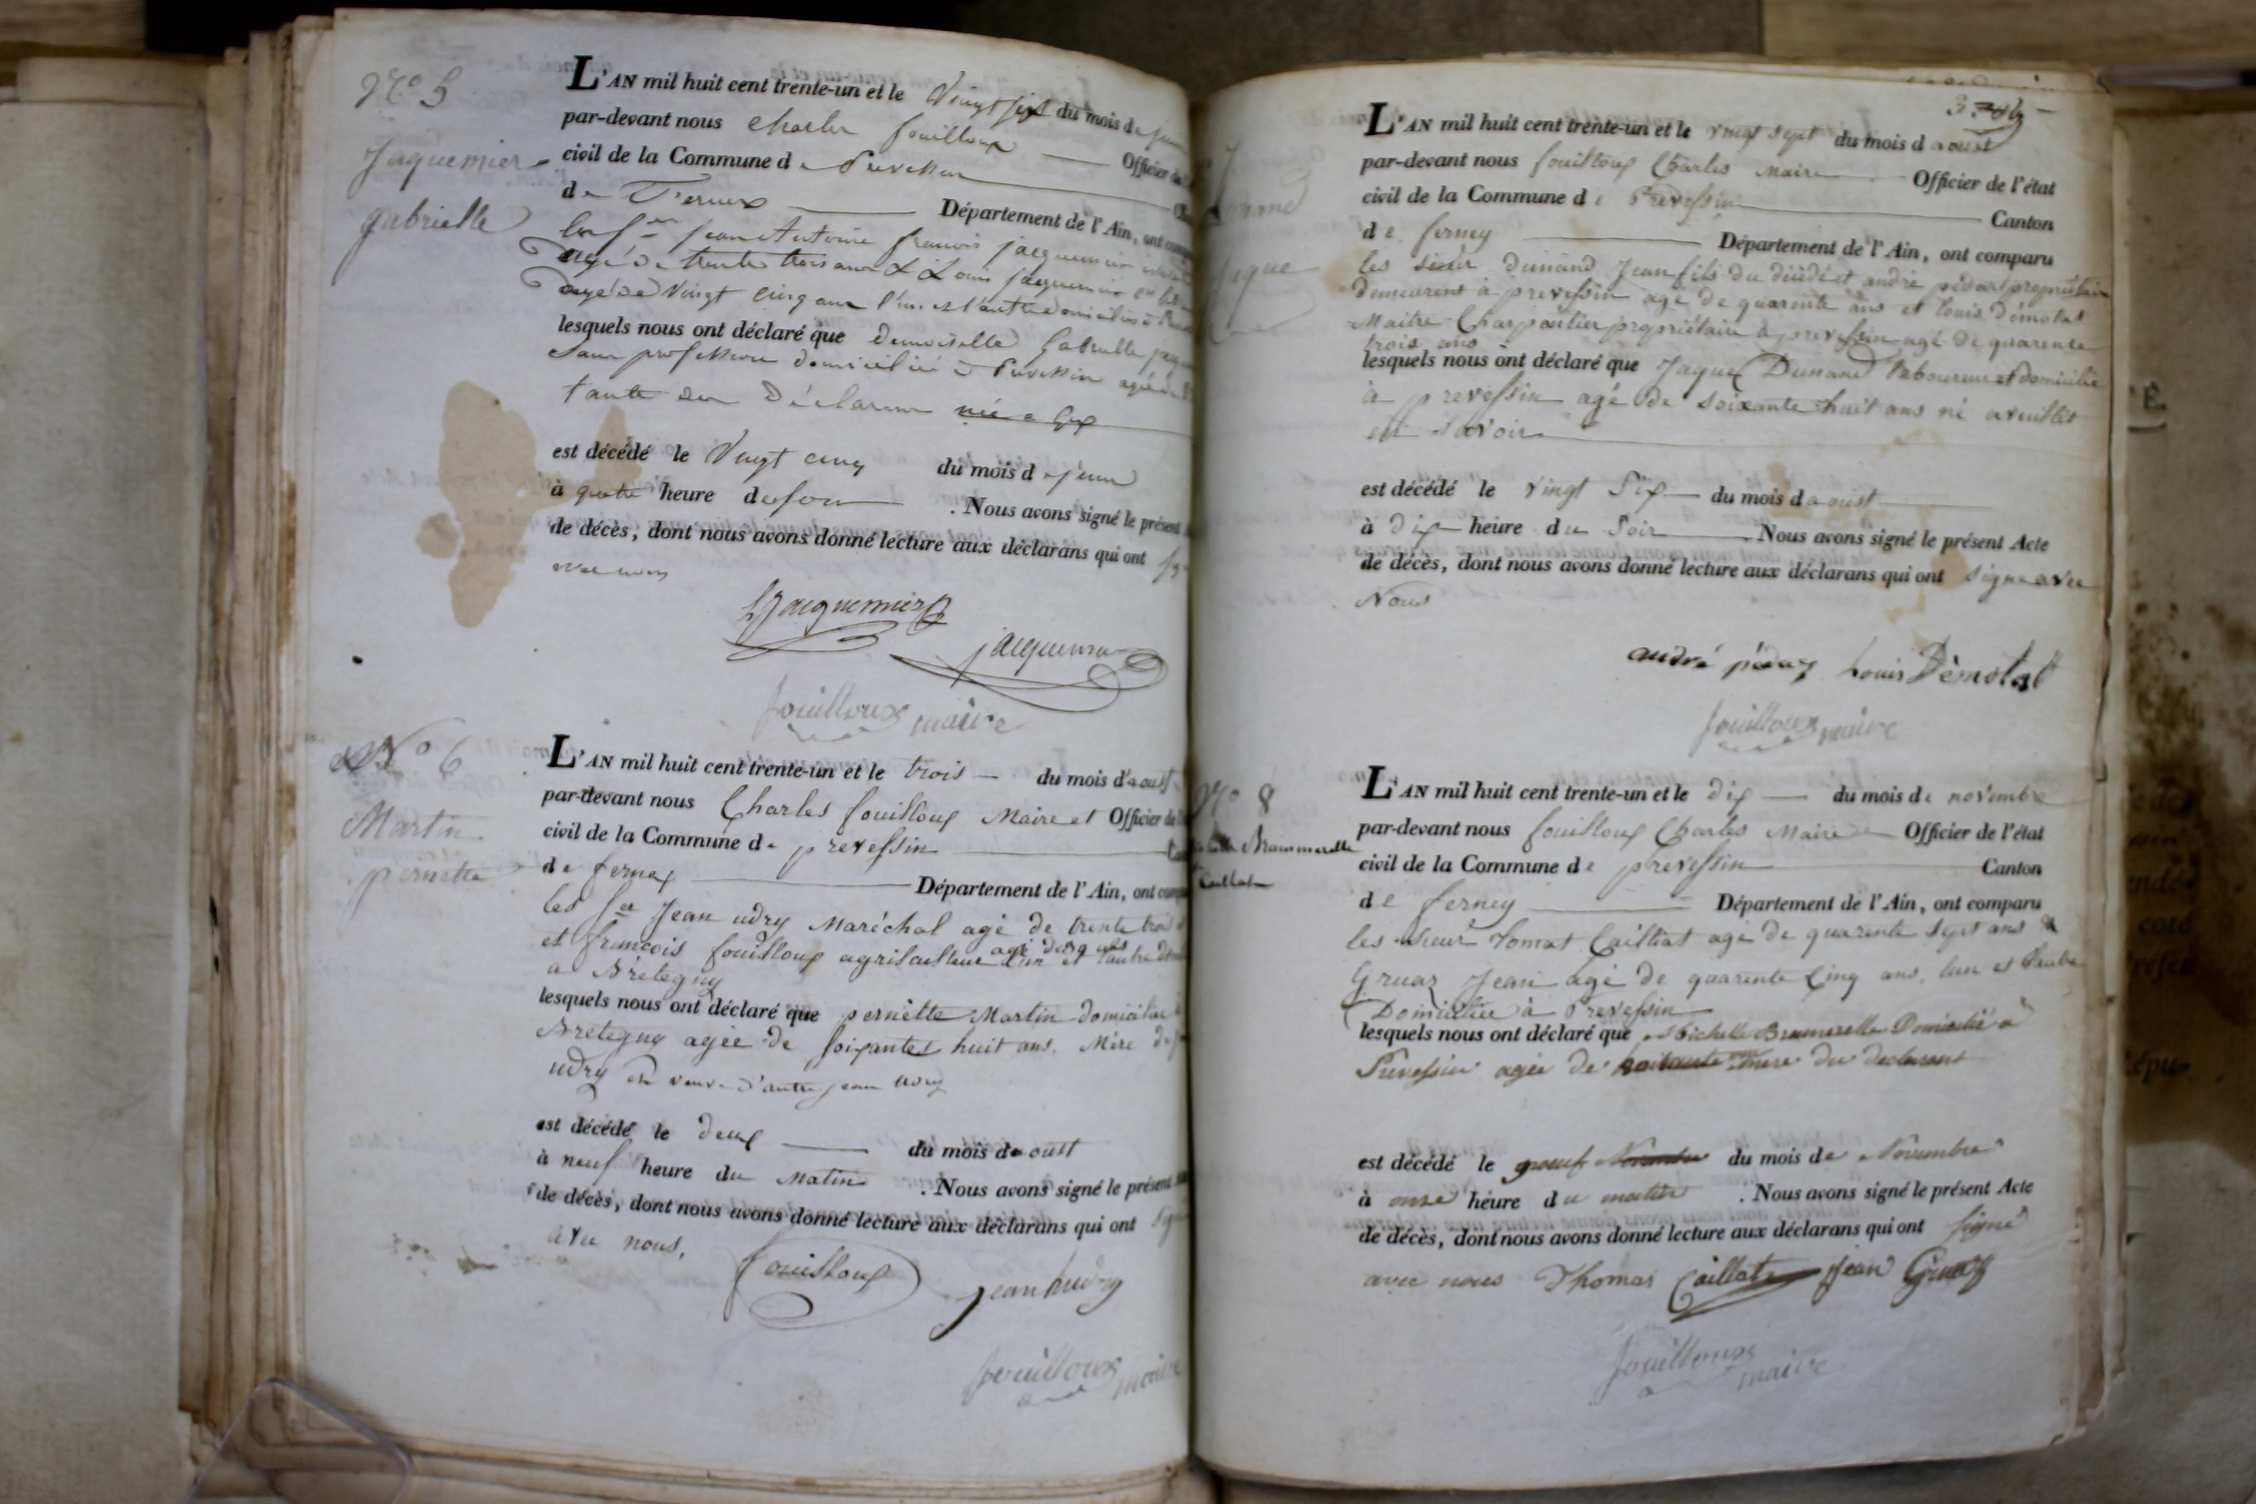 N.o 5
Jaquemier
gabrielle
L'AN mil huit cent trente-un et le Vingt six du mois de juin
par-devant nous Charles fouilloux Officier
civil de la Commune de Prevessin
de Ferney Département de l'Ain, ont
les Srs Jean Antoine francois jacquemier
agé de trente trois ans & Louis jacquemier
agé de Vingt cinq ans l'un et l'autre domiciliés à
lesquels nous ont déclaré que demoiselle Gabrielle
sans profession domiciliée à Prevessin agée de
tante des Déclarans née a Gex
est décédé le Vingt cinq du mois de juin
à quatre heure du soir . Nous avons signé le présent
de décès, dont nous avons donné lecture aux déclarans qui ont
avec nous
Jacquemier
jacquemier
fouilloux maire
N.o 6
Martin
pernette
L'AN mil huit cent trente-un et le trois du mois d'aoust
par-devant nous Charles fouilloux Maire et Officier de
civil de la Commune de prevessin
de ferney Département de l'Ain, ont
les Srs Jean udry Maréchal agé de trente trois
et francois fouilloux agriculteur agé de 29 ans l'un et l'autre
a Bretegny
lesquels nous ont déclaré que pernette Martin domiciliée à
Bretegny agée de soixante huit ans. Mère de
udry et veuve d'autre jean udry
est décédé le deux du mois d'aoust
à neuf heure du Matin . Nous avons signé le présent
de décès, dont nous avons donné lecture aux déclarans qui ont
avec nous,
fouilloux
jean hudry
fouilloux maire
L'AN mil huit cent trente-un et le vingt sept du mois d'aoust
par-devant nous fouilloux Charles maire Officier de l'état
civil de la Commune de Prevessin Canton
de ferney Département de l'Ain, ont comparu
les sieur dunand Jean fils du décédé et andré péday propriétaire
demeurent à prevessin agé de quarente ans et louis démolat
Maitre Charpantier propriétaire à prevessin agé de quarente
trois ans
lesquels nous ont déclaré que Jaque Dunand laboureur et domicilié
à prevessin agé de soixante huit ans né
savoir
est décédé le vingt six du mois d'aoust
à dix heure du soir Nous avons signé le présent Acte
de décès, dont nous avons donné lecture aux déclarans qui ont signé avec
Nous
andré péday Louis Démolat
fouilloux maire
N.o 8
Brammerelle
Caillat
L'AN mil huit cent trente-un et le dix du mois de novembre
par-devant nous fouilloux Charles Maire Officier de l'état
civil de la Commune de prevessin Canton
de ferney Département de l'Ain, ont comparu
les sieur Tomat Cailliat agé de quarente sept ans &
Gruaz Jean agé de quarente Cinq ans, l'un et l'autre
Domiciliée à Prevessin
lesquels nous ont déclaré que Michelle Bramerelle Domicilié à
Prevessin agée de mere du declarant
est décédé le neuf Novembre du mois de Novembre
à onze heure du matin . Nous avons signé le présent Acte
de décès, dont nous avons donné lecture aux déclarans qui ont signé
avec nous Thomas Caillat Jean Gruaz
fouilloux maire